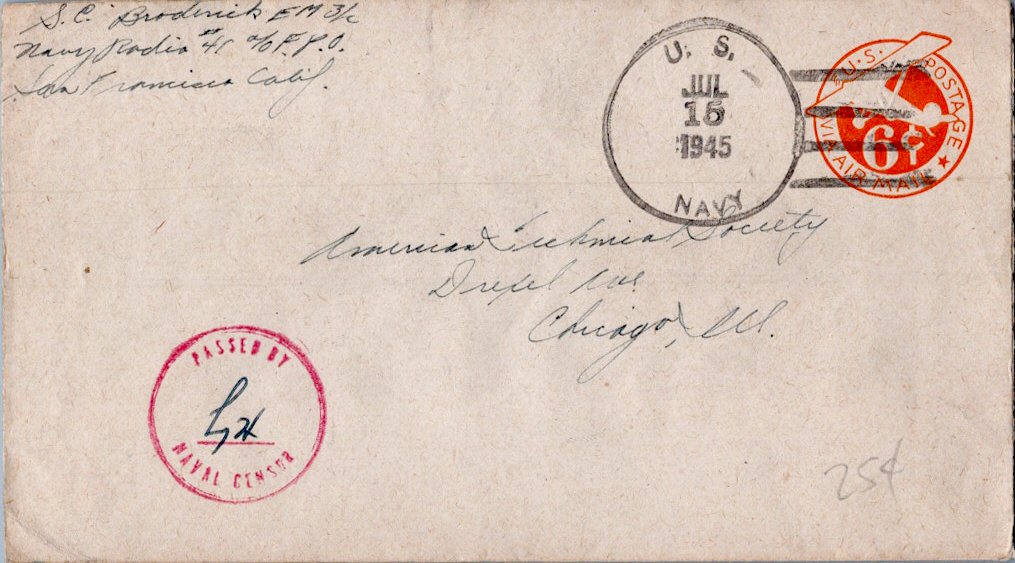 S. C. Broderick EM 3/c
Navy Radio #41 c/o F.P.O.
San Francisco Calif.
U. S.
JUL
15
1945
NAVY
U.S. POSTAGE
6¢
VIA AIR MAIL
American Technical Society
Drexel Ave
Chicago, Ill.
PASSED BY
NAVAL CENSOR
25¢